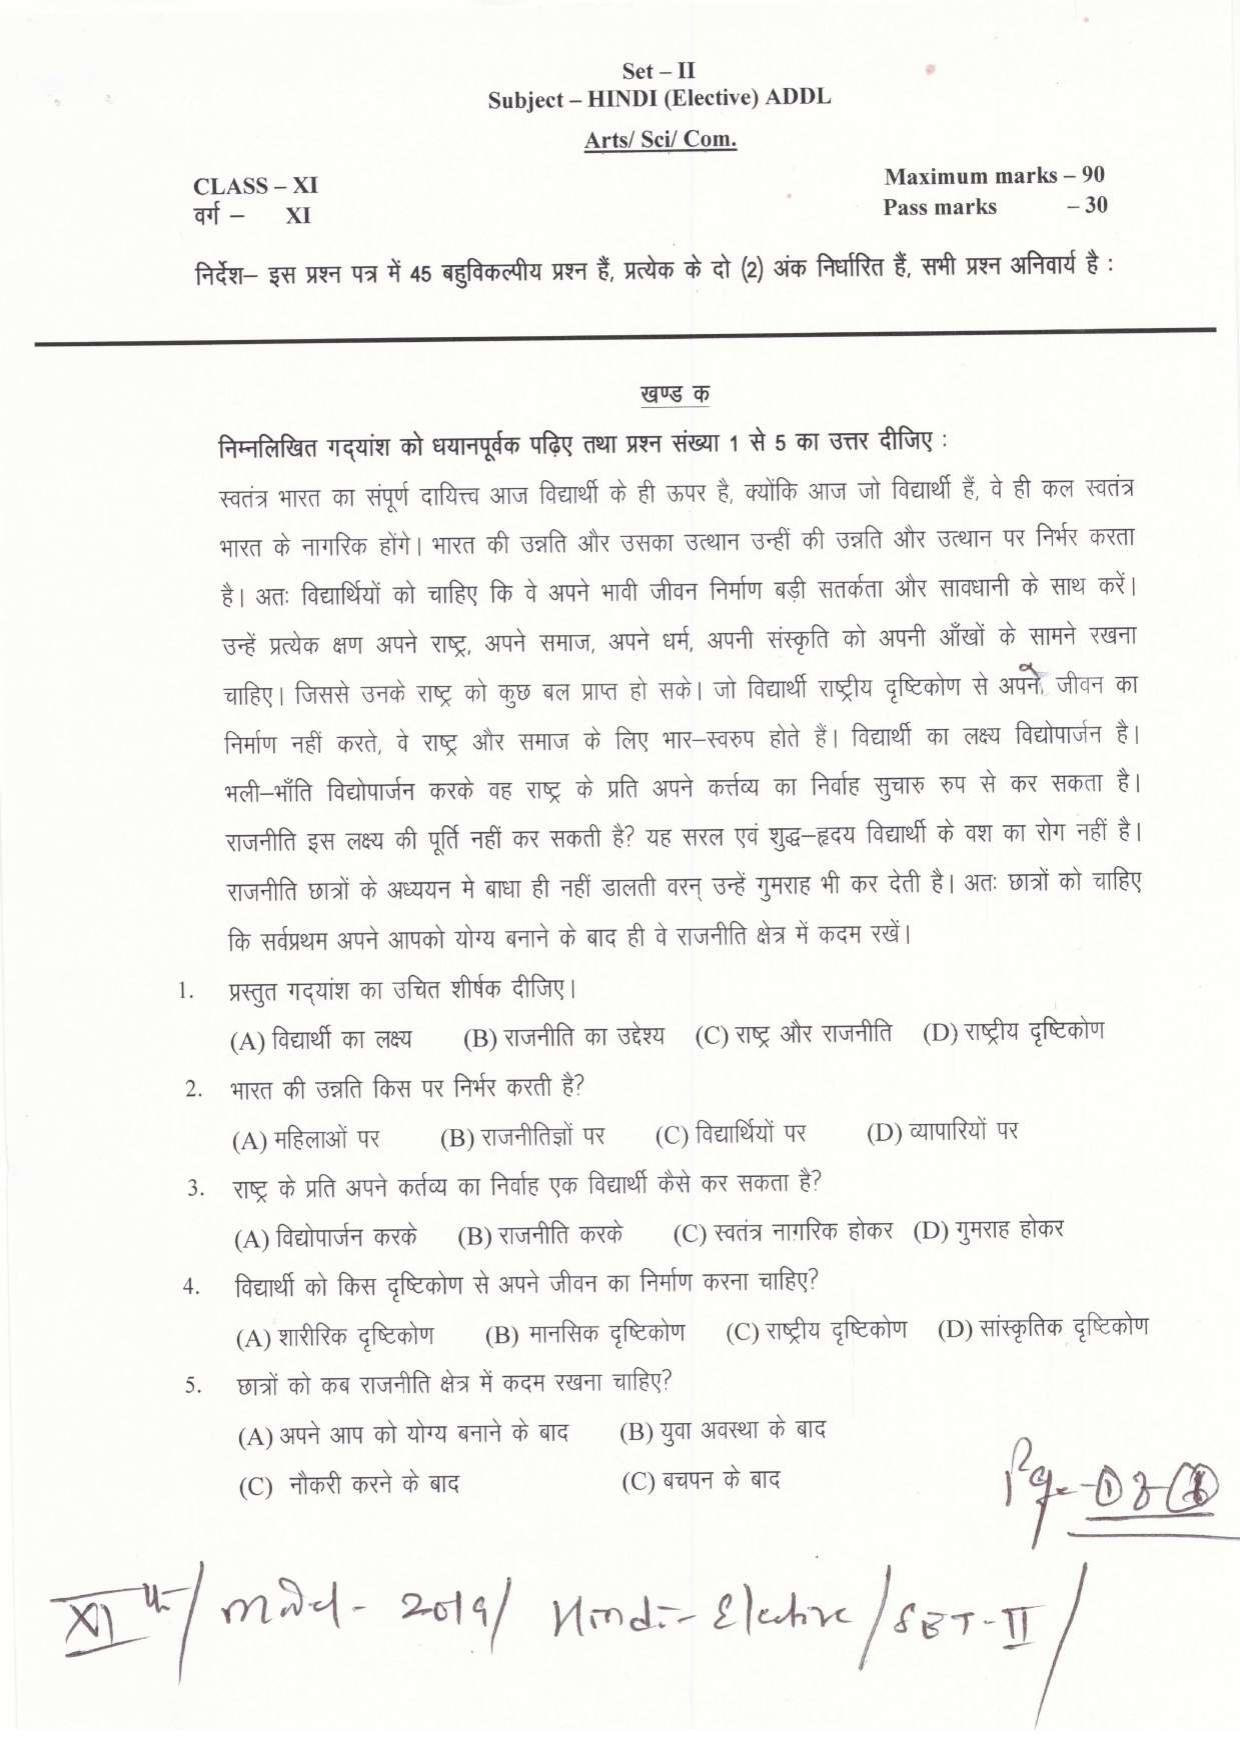 Set – II
Subject – HINDI (Elective) ADDL
Arts/ Sci/ Com.
CLASS – XI
Maximum marks – 90
वर्ग – XI
Pass marks – 30
निर्देश– इस प्रश्न पत्र में 45 बहुविकल्पीय प्रश्न हैं, प्रत्येक के दो (2) अंक निर्धारित हैं, सभी प्रश्न अनिवार्य है :
खण्ड क
निम्नलिखित गद्यांश को धयानपूर्वक पढ़िए तथा प्रश्न संख्या 1 से 5 का उत्तर दीजिए :
स्वतंत्र भारत का संपूर्ण दायित्त्व आज विद्यार्थी के ही ऊपर है, क्योंकि आज जो विद्यार्थी हैं, वे ही कल स्वतंत्र
भारत के नागरिक होंगे। भारत की उन्नति और उसका उत्थान उन्हीं की उन्नति और उत्थान पर निर्भर करता
है। अतः विद्यार्थियों को चाहिए कि वे अपने भावी जीवन निर्माण बड़ी सतर्कता और सावधानी के साथ करें।
उन्हें प्रत्येक क्षण अपने राष्ट्र, अपने समाज, अपने धर्म, अपनी संस्कृति को अपनी आँखों के सामने रखना
चाहिए। जिससे उनके राष्ट्र को कुछ बल प्राप्त हो सके। जो विद्यार्थी राष्ट्रीय दृष्टिकोण से अपने जीवन का
निर्माण नहीं करते, वे राष्ट्र और समाज के लिए भार–स्वरुप होते हैं। विद्यार्थी का लक्ष्य विद्योपार्जन है।
भली–भाँति विद्योपार्जन करके वह राष्ट्र के प्रति अपने कर्त्तव्य का निर्वाह सुचारु रुप से कर सकता है।
राजनीति इस लक्ष्य की पूर्ति नहीं कर सकती है? यह सरल एवं शुद्ध–हृदय विद्यार्थी के वश का रोग नहीं है।
राजनीति छात्रों के अध्ययन मे बाधा ही नहीं डालती वरन् उन्हें गुमराह भी कर देती है। अतः छात्रों को चाहिए
कि सर्वप्रथम अपने आपको योग्य बनाने के बाद ही वे राजनीति क्षेत्र में कदम रखें।
1. प्रस्तुत गद्यांश का उचित शीर्षक दीजिए।
(A) विद्यार्थी का लक्ष्य (B) राजनीति का उद्देश्य (C) राष्ट्र और राजनीति (D) राष्ट्रीय दृष्टिकोण
2. भारत की उन्नति किस पर निर्भर करती है?
(A) महिलाओं पर (B) राजनीतिज्ञों पर (C) विद्यार्थियों पर (D) व्यापारियों पर
3. राष्ट्र के प्रति अपने कर्तव्य का निर्वाह एक विद्यार्थी कैसे कर सकता है?
(A) विद्योपार्जन करके (B) राजनीति करके (C) स्वतंत्र नागरिक होकर (D) गुमराह होकर
4. विद्यार्थी को किस दृष्टिकोण से अपने जीवन का निर्माण करना चाहिए?
(A) शारीरिक दृष्टिकोण (B) मानसिक दृष्टिकोण (C) राष्ट्रीय दृष्टिकोण (D) सांस्कृतिक दृष्टिकोण
5. छात्रों को कब राजनीति क्षेत्र में कदम रखना चाहिए?
(A) अपने आप को योग्य बनाने के बाद (B) युवा अवस्था के बाद
(C) नौकरी करने के बाद (C) बचपन के बाद
XI th / / Hindi - Elective / SET - II /